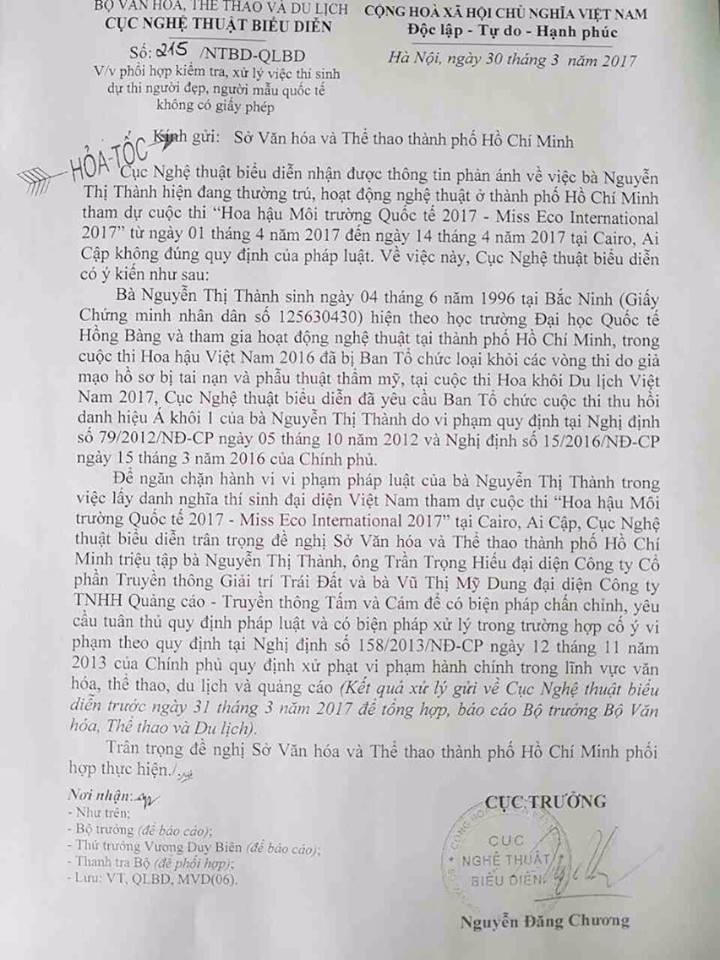 BỘ VĂN HÓA, THỂ THAO VÀ DU LỊCH
CỤC NGHỆ THUẬT BIỂU DIỄN
CỘNG HOÀ XÃ HỘI CHỦ NGHĨA VIỆT NAM
Độc lập - Tự do - Hạnh phúc
Số: 215 /NTBD-QLBD
Hà Nội, ngày 30 tháng 3 năm 2017
V/v phối hợp kiểm tra, xử lý việc thí sinh
dự thi người đẹp, người mẫu quốc tế
không có giấy phép
HỎA-TỐC
Kính gửi: Sở Văn hóa và Thể thao thành phố Hồ Chí Minh
Cục Nghệ thuật biểu diễn nhận được thông tin phản ánh về việc bà Nguyễn
Thị Thành hiện đang thường trú, hoạt động nghệ thuật ở thành phố Hồ Chí Minh
tham dự cuộc thi “Hoa hậu Môi trường Quốc tế 2017 - Miss Eco International
2017” từ ngày 01 tháng 4 năm 2017 đến ngày 14 tháng 4 năm 2017 tại Cairo, Ai
Cập không đúng quy định của pháp luật. Về việc này, Cục Nghệ thuật biểu diễn
có ý kiến như sau:
Bà Nguyễn Thị Thành sinh ngày 04 tháng 6 năm 1996 tại Bắc Ninh (Giấy
Chứng minh nhân dân số 125630430) hiện theo học trường Đại học Quốc tế
Hồng Bàng và tham gia hoạt động nghệ thuật tại thành phố Hồ Chí Minh, trong
cuộc thi Hoa hậu Việt Nam 2016 đã bị Ban Tổ chức loại khỏi các vòng thi do giả
mạo hồ sơ bị tai nạn và phẫu thuật thẩm mỹ, tại cuộc thi Hoa khôi Du lịch Việt
Nam 2017, Cục Nghệ thuật biểu diễn đã yêu cầu Ban Tổ chức cuộc thi thu hồi
danh hiệu Á khôi 1 của bà Nguyễn Thị Thành do vi phạm quy định tại Nghị định
số 79/2012/NĐ-CP ngày 05 tháng 10 năm 2012 và Nghị định số 15/2016/NĐ-CP
ngày 15 tháng 3 năm 2016 của Chính phủ.
Để ngăn chặn hành vi vi phạm pháp luật của bà Nguyễn Thị Thành trong
việc lấy danh nghĩa thí sinh đại diện Việt Nam tham dự cuộc thi “Hoa hậu Môi
trường Quốc tế 2017 - Miss Eco International 2017” tại Cairo, Ai Cập, Cục Nghệ
thuật biểu diễn trân trọng đề nghị Sở Văn hóa và Thể thao thành phố Hồ Chí
Minh triệu tập bà Nguyễn Thị Thành, ông Trần Trọng Hiếu đại diện Công ty Cổ
phần Truyền thông Giải trí Trái Đất và bà Vũ Thị Mỹ Dung đại diện Công ty
TNHH Quảng cáo - Truyền thông Tấm và Cám để có biện pháp chấn chỉnh, yêu
cầu tuân thủ quy định pháp luật và có biện pháp xử lý trong trường hợp cố ý vi
phạm theo quy định tại Nghị định số 158/2013/NĐ-CP ngày 12 tháng 11 năm
2013 của Chính phủ quy định xử phạt vi phạm hành chính trong lĩnh vực văn
hóa, thể thao, du lịch và quảng cáo (Kết quả xử lý gửi về Cục Nghệ thuật biểu
diễn trước ngày 31 tháng 3 năm 2017 để tổng hợp, báo cáo Bộ trưởng Bộ Văn
hóa, Thể thao và Du lịch).
Trân trọng đề nghị Sở Văn hóa và Thể thao thành phố Hồ Chí Minh phối
hợp thực hiện./.
Nơi nhận:
- Như trên;
- Bộ trưởng (để báo cáo);
- Thứ trưởng Vương Duy Biên (để báo cáo);
- Thanh tra Bộ (để phối hợp);
- Lưu: VT, QLBD, MVD(06).
CỤC TRƯỞNG
CỤC
NGHỆ THUẬT
BIỂU DIỄN
Nguyễn Đăng Chương